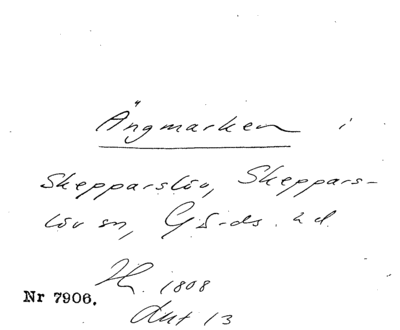 Ängmarken i
Skepparslöv, Skeppars-
löv sn, Gärds hd.
1808
Nr 7906.
Akt 13